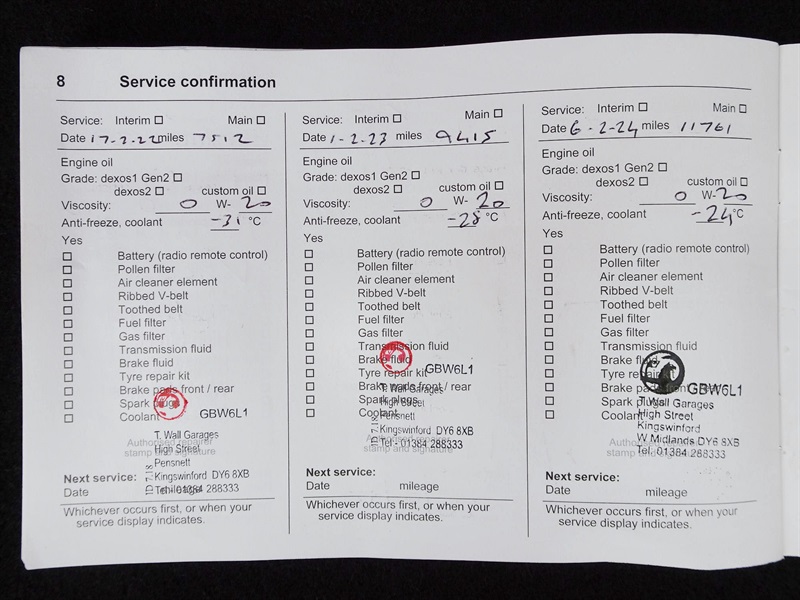 8 Service confirmation
Service: Interim ☐ Main ☐
Date 17-2-22 miles 7512
Engine oil
Grade: dexos1 Gen2 ☐
dexos2 ☐ custom oil ☐
Viscosity: 0 W- 20
Anti-freeze, coolant -31 °C
Yes
☐ Battery (radio remote control)
☐ Pollen filter
☐ Air cleaner element
☐ Ribbed V-belt
☐ Toothed belt
☐ Fuel filter
☐ Gas filter
☐ Transmission fluid
☐ Brake fluid
☐ Tyre repair kit
☐ Brake pads front / rear
☐ Spark plugs
☐ Coolant
GBW6L1
T. Wall Garages
High Street
Pensnett
Kingswinford DY6 8XB
Tel - 01384 288333
Authorised repairer
stamp and signature
Next service:
Date mileage
Whichever occurs first, or when your
service display indicates.
Service: Interim ☐ Main ☐
Date 1-2-23 miles 9415
Engine oil
Grade: dexos1 Gen2 ☐
dexos2 ☐ custom oil ☐
Viscosity: 0 W- 20
Anti-freeze, coolant -28 °C
Yes
☐ Battery (radio remote control)
☐ Pollen filter
☐ Air cleaner element
☐ Ribbed V-belt
☐ Toothed belt
☐ Fuel filter
☐ Gas filter
☐ Transmission fluid
☐ Brake fluid
☐ Tyre repair kit
☐ Brake pads front / rear
☐ Spark plugs
☐ Coolant
GBW6L1
T. Wall Garages
High Street
Pensnett
Kingswinford DY6 8XB
Tel - 01384 288333
Authorised repairer
stamp and signature
Next service:
Date mileage
Whichever occurs first, or when your
service display indicates.
Service: Interim ☐ Main ☐
Date 6-2-24 miles 11761
Engine oil
Grade: dexos1 Gen2 ☐
dexos2 ☐ custom oil ☐
Viscosity: 0 W- 20
Anti-freeze, coolant -24 °C
Yes
☐ Battery (radio remote control)
☐ Pollen filter
☐ Air cleaner element
☐ Ribbed V-belt
☐ Toothed belt
☐ Fuel filter
☐ Gas filter
☐ Transmission fluid
☐ Brake fluid
☐ Tyre repair kit
☐ Brake pads front / rear
☐ Spark plugs
☐ Coolant
GBW6L1
T. Wall Garages
High Street
Kingswinford
W Midlands DY6 8XB
Tel: 01384 288333
Authorised repairer
stamp and signature
Next service:
Date mileage
Whichever occurs first, or when your
service display indicates.